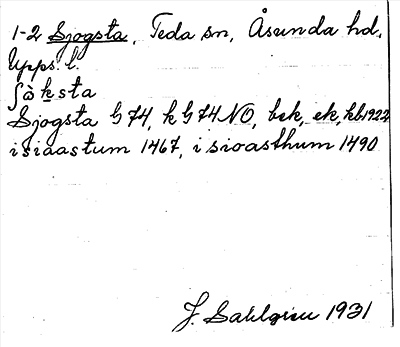 1-2 Sjogsta, Teda sn, Åsunda hd,
Upps. l.
ʃò̀ksta
Sjogsta G 74, k G 74 NO, bek, ek, kb 1922
i siaastum 1467, i sioasthum 1490
J. Sahlgren 1931